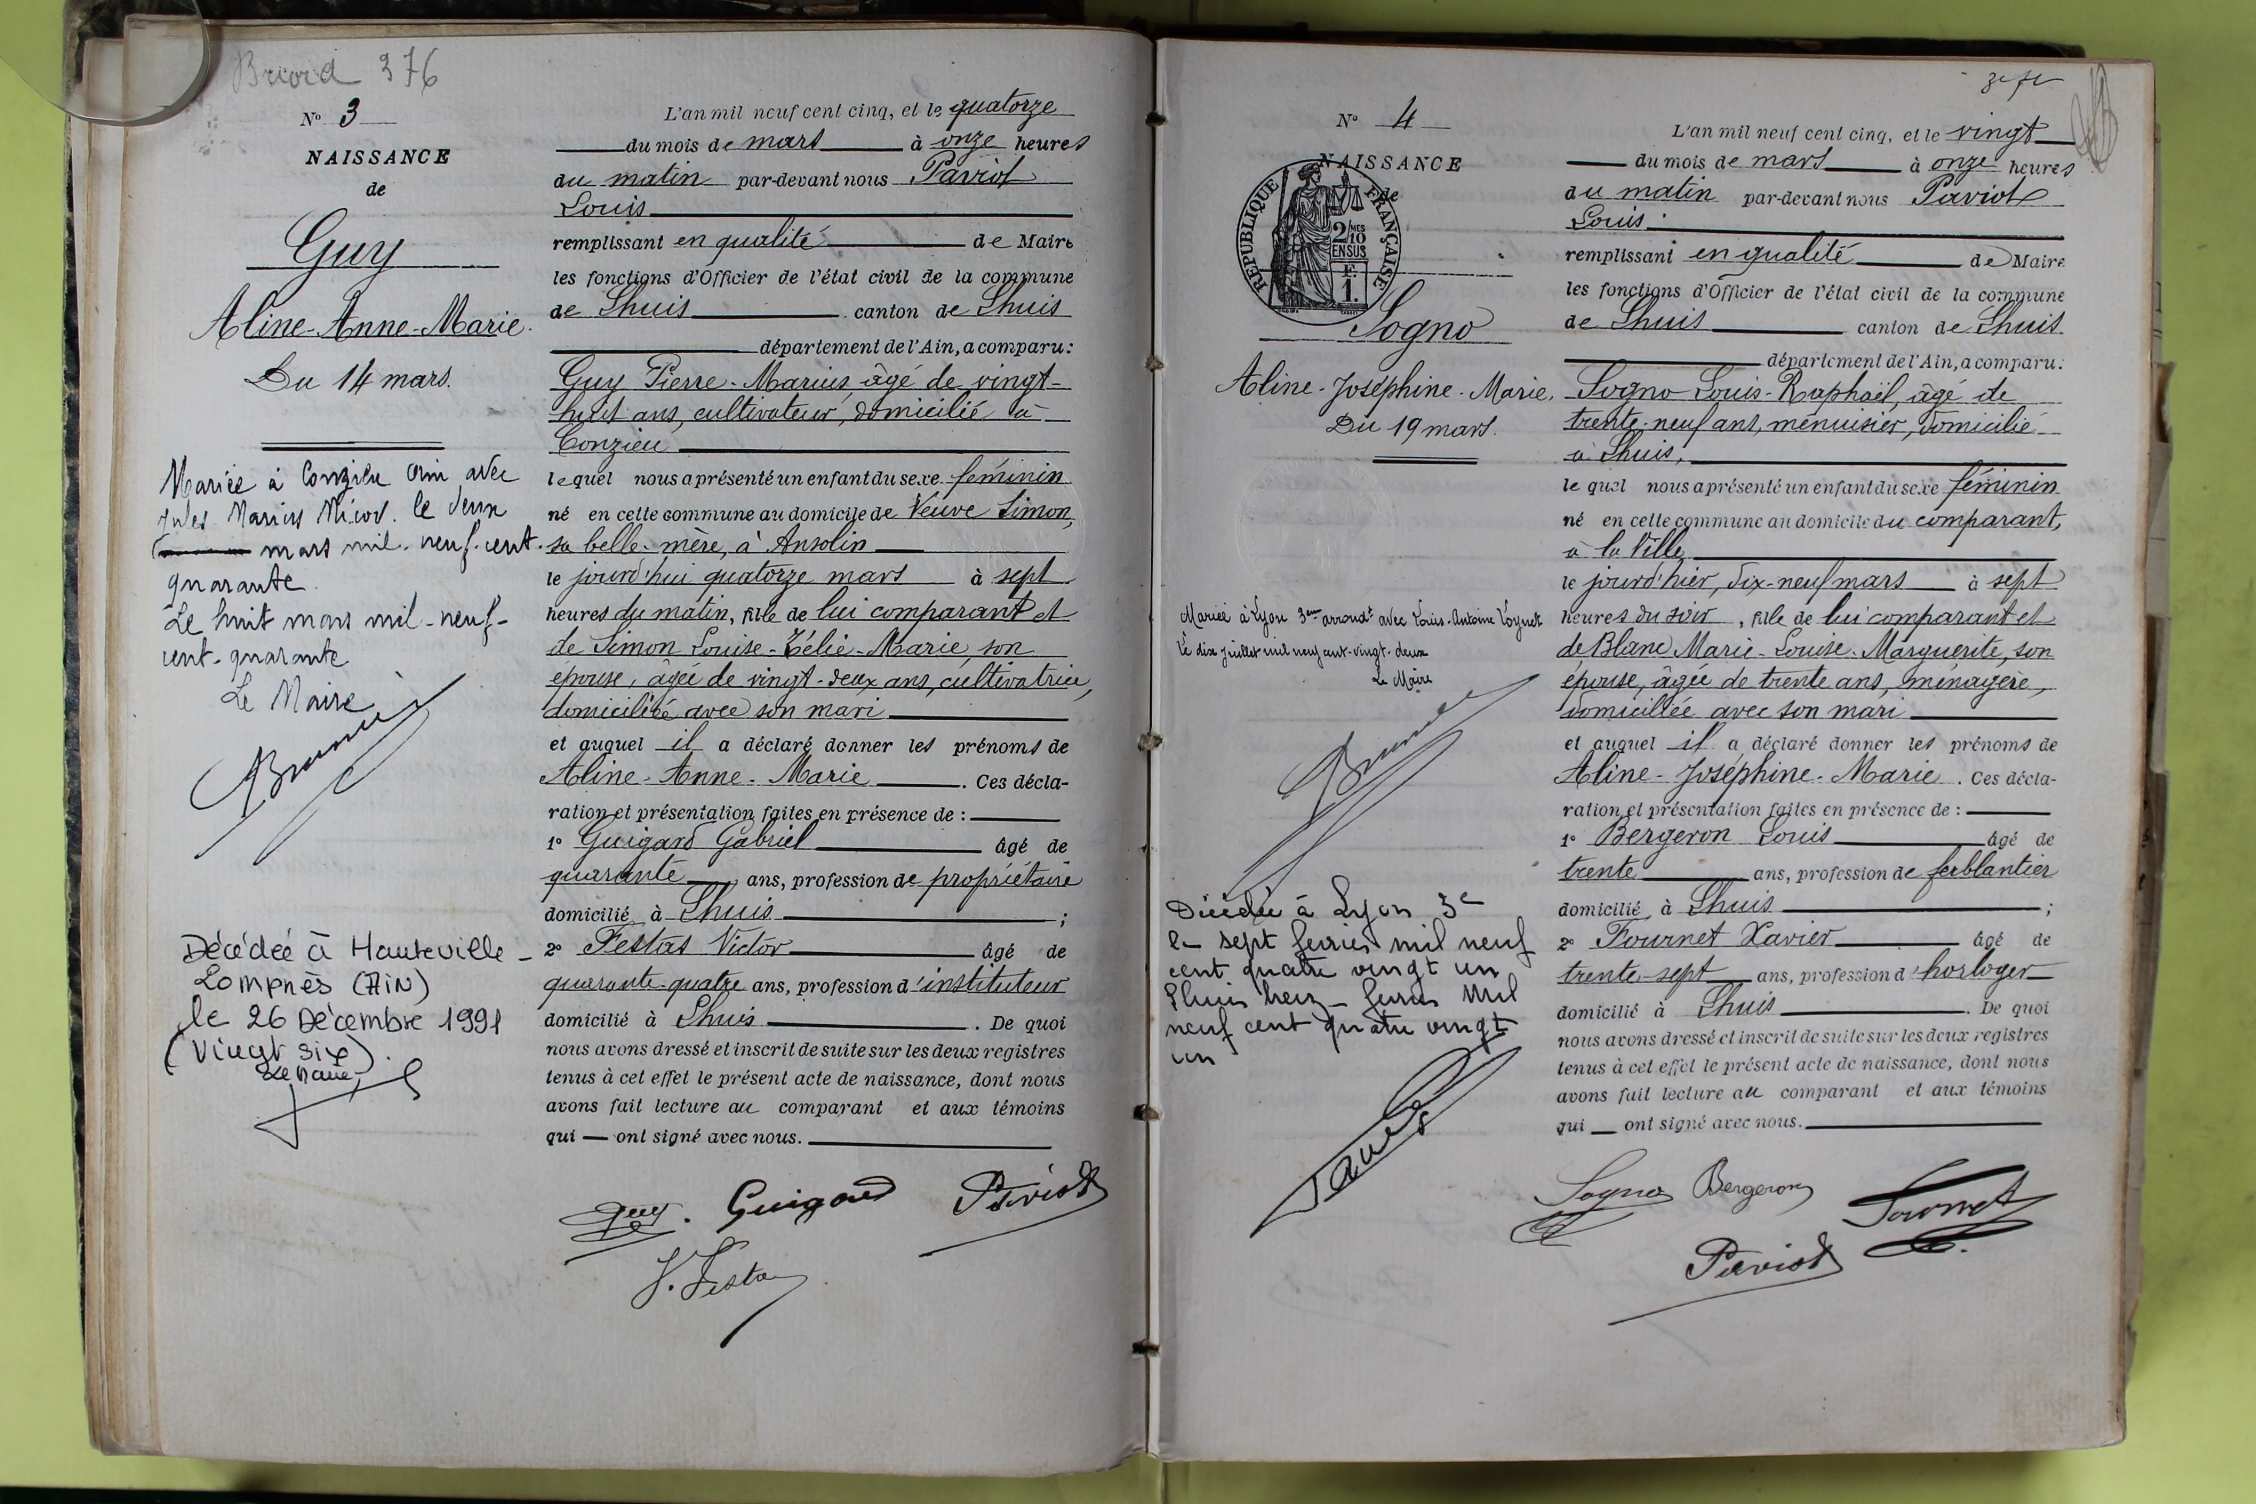 Briord 376
N° 3
NAISSANCE
de
Guy
Aline-Anne-Marie.
Du 14 mars.
Mariée à Conzieu Ain avec
Jules Marius Micod. le deux
mars mil-neuf-cent-
quarante.
Le huit mars mil-neuf-
cent-quarante
Le Maire
Décédée à Hauteville-
Lompnès (AIN)
le 26 Décembre 1991
(Vingt six).
Le Maire,
L'an mil neuf cent cinq, et le quatorze
du mois de mars à onze heures
du matin par-devant nous Paviot
Louis
remplissant en qualité de Maire
les fonctions d'Officier de l'état civil de la commune
de Lhuis canton de Lhuis
département de l'Ain, a comparu:
Guy Pierre-Marius, âgé de vingt-
huit ans, cultivateur, domicilié à
Conzieu
lequel nous a présenté un enfant du sexe féminin
né en cette commune au domicile de Veuve Simon,
sa belle-mère, à Ansolin
le jourd'hui quatorze mars à sept
heures du matin, fille de lui comparant et
de Simon Louise-Zélie-Marie, son
épouse, âgée de vingt-deux ans, cultivatrice,
domiciliée avec son mari
et auquel il a déclaré donner les prénoms de
Aline-Anne-Marie. Ces décla-
ration et présentation faites en présence de :
1° Guigard Gabriel âgé de
quarante ans, profession de propriétaire
domicilié à Lhuis ;
2° Festas Victor âgé de
quarante-quatre ans, profession d'instituteur
domicilié à Lhuis. De quoi
nous avons dressé et inscrit de suite sur les deux registres
tenus à cet effet le présent acte de naissance, dont nous
avons fait lecture au comparant et aux témoins
qui — ont signé avec nous.
Guy. Guigard Paviot
V. Festas
N° 4
NAISSANCE
de
REPUBLIQUE FRANÇAISE
2/10 MES
EN SUS
F.
1.
Sogno
Aline-Joséphine-Marie.
Du 19 mars.
Mariée à Lyon 3eme arrondt avec Louis-Antoine
le dix juillet mil neuf cent-vingt-deux
Le Maire
Décédée à Lyon 3e
le sept fevrier mil neuf
cent quatre vingt un
Lhuis fevrier mil
neuf cent quatre vingt
un
L'an mil neuf cent cinq, et le vingt
du mois de mars à onze heures
du matin par-devant nous Paviot
Louis.
remplissant en qualité de Maire
les fonctions d'Officier de l'état civil de la commune
de Lhuis canton de Lhuis
département de l'Ain, a comparu:
Sogno Louis-Raphaël, âgé de
trente-neuf ans, menuisier, domicilié
à Lhuis,
lequel nous a présenté un enfant du sexe féminin
né en cette commune au domicile du comparant,
à la Ville
le jourd'hier, dix-neuf mars à sept
heures du soir, fille de lui comparant et
de Blanc Marie-Louise-Marguerite, son
épouse, âgée de trente ans, ménagère,
domiciliée avec son mari
et auquel il a déclaré donner les prénoms de
Aline-Joséphine-Marie. Ces décla-
ration et présentation faites en présence de :
1° Bergeron Louis âgé de
trente ans, profession de ferblantier
domicilié à Lhuis ;
2° Fournet Xavier âgé de
trente-sept ans, profession d'horloger
domicilié à Lhuis. De quoi
nous avons dressé et inscrit de suite sur les deux registres
tenus à cet effet le présent acte de naissance, dont nous
avons fait lecture au comparant et aux témoins
qui — ont signé avec nous.
Sogno Bergeron Fournet
Paviot